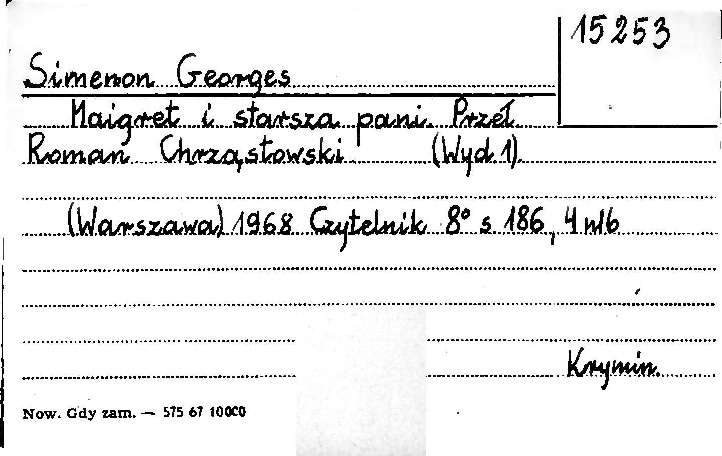 15253
Simenon Georges
Maigret i starsza pani. Przeł
Roman Chrząstowski (Wyd. 1).
(Warszawa) 1968 Czytelnik 8° s 186, 4 nlb
Krymin.
Now. Gdy zam. — 575 67 10000